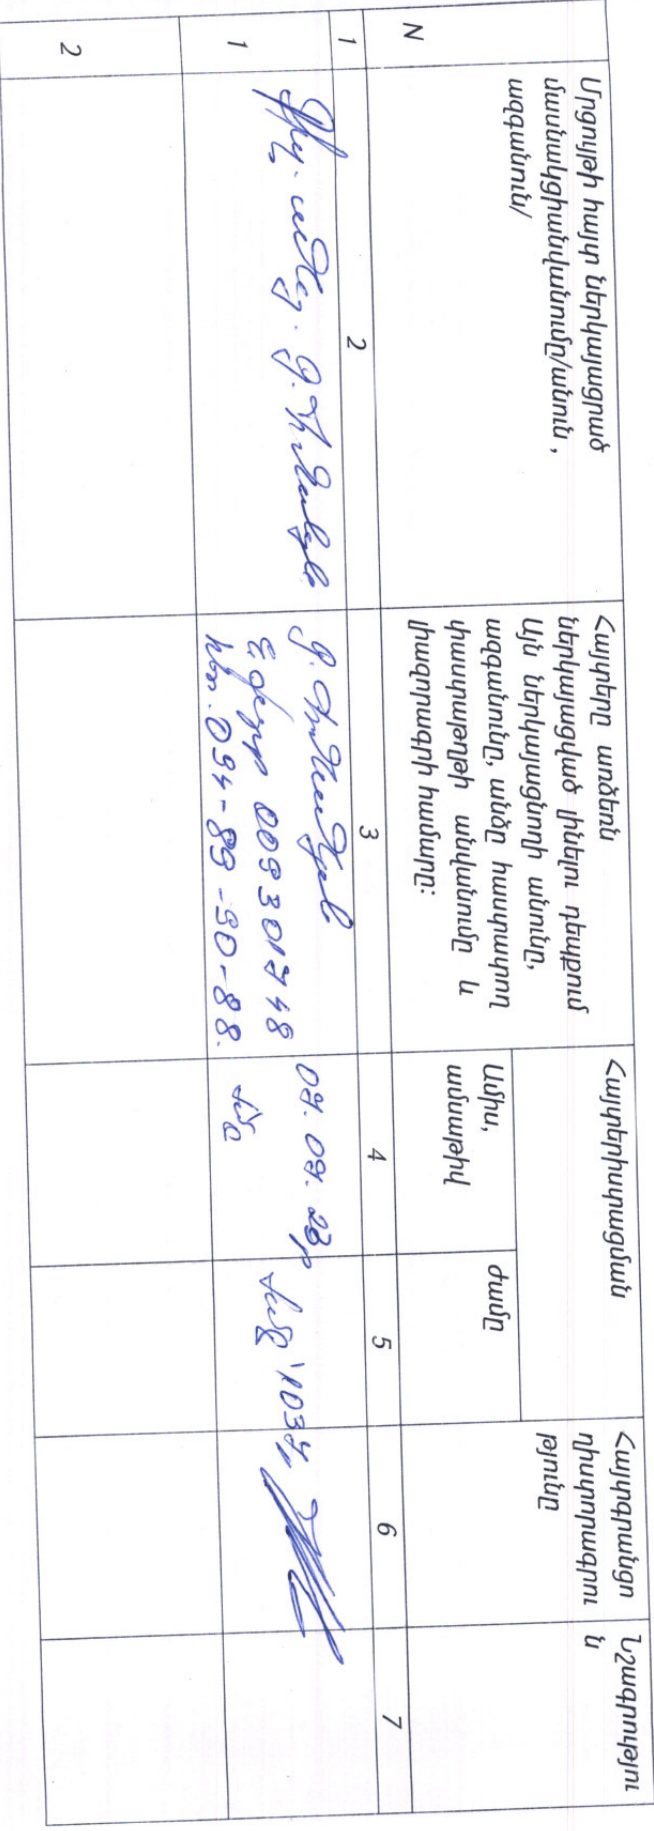 N
Մրցույթի հայտ ներկայացրած
մասնակցիանվանումը/անուն,
ազգանուն/
Հայտերը առձեռն
ներկայացված լինելու դեպքում
Այն ներկայացնողի անունը,
ազգանունը, անձը հաստատող
փաստաթղթի անվանումը և
լիազորագրի համարը:
Հայտերիստացման
Ամիս,
ամսաթիվ
Ժամը
Հայտգրանցո
ղիստորագրու
թյունը
Նշագրությու
ն
1
2
3
4
5
6
7
1
Ֆիզ. անձ
Գ.
Գ.
009301748
հեռ. 094-89-90-88.
07. 07. 23թ
ժամը
ժամը 1037
2